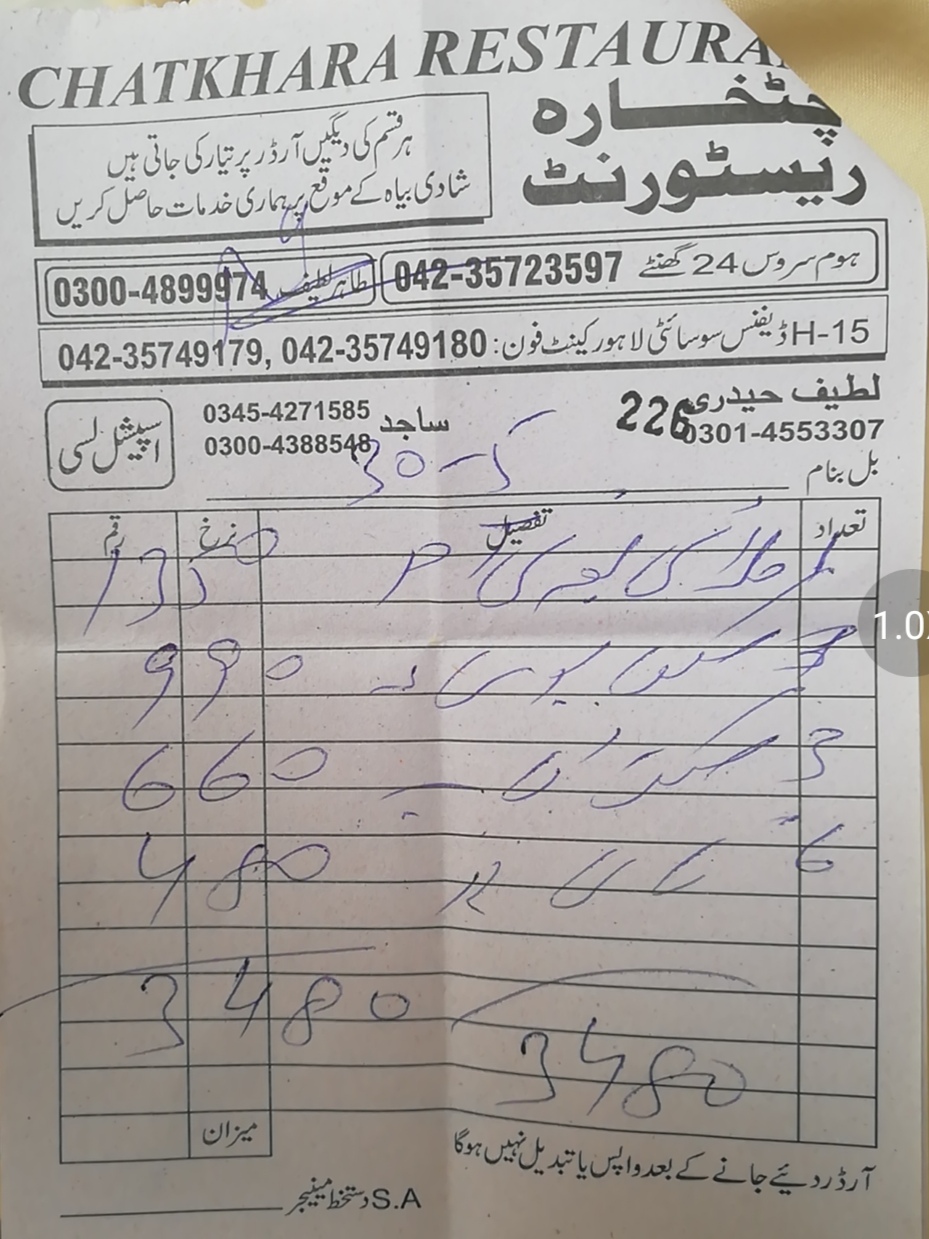 CHATKHARA RESTAURA
چٹخارہ
ریسٹورنٹ
ہر قسم کی دیگیں آرڈر پر تیار کی جاتی ہیں
شادی بیاہ کے موقع پر ہماری خدمات حاصل کریں
ہوم سروس 24 گھنٹے 042-35723597
طاہر لطیف 0300-4899974
H-15 ڈیفنس سوسائٹی لاہور کینٹ فون: 042-35749180, 042-35749179
لطیف حیدری
0301-4553307
226
ساجد 0345-4271585
0300-4388548
اسپیشل لسی
بل بنام
تعداد تفصیل نرخ رقم
1350
990
3 660
6 480
3480
3480
میزان
آرڈر دیئے جانے کے بعد واپس یا تبدیل نہیں ہوگا
S.A دستخط مینیجر
1.0x